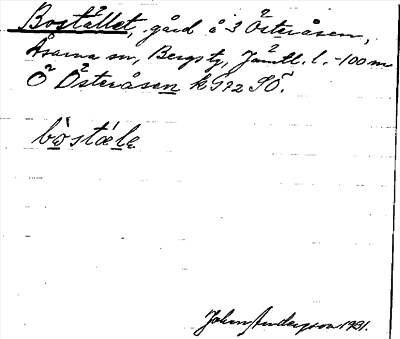 Bostället, gård å 3 Österåsen,
Åsarna sn, Bergs tg, Jämtl. l. -100 m
Ö Österåsen k 972 SO.
bo̊stǽle
Johan Andersson 1931.